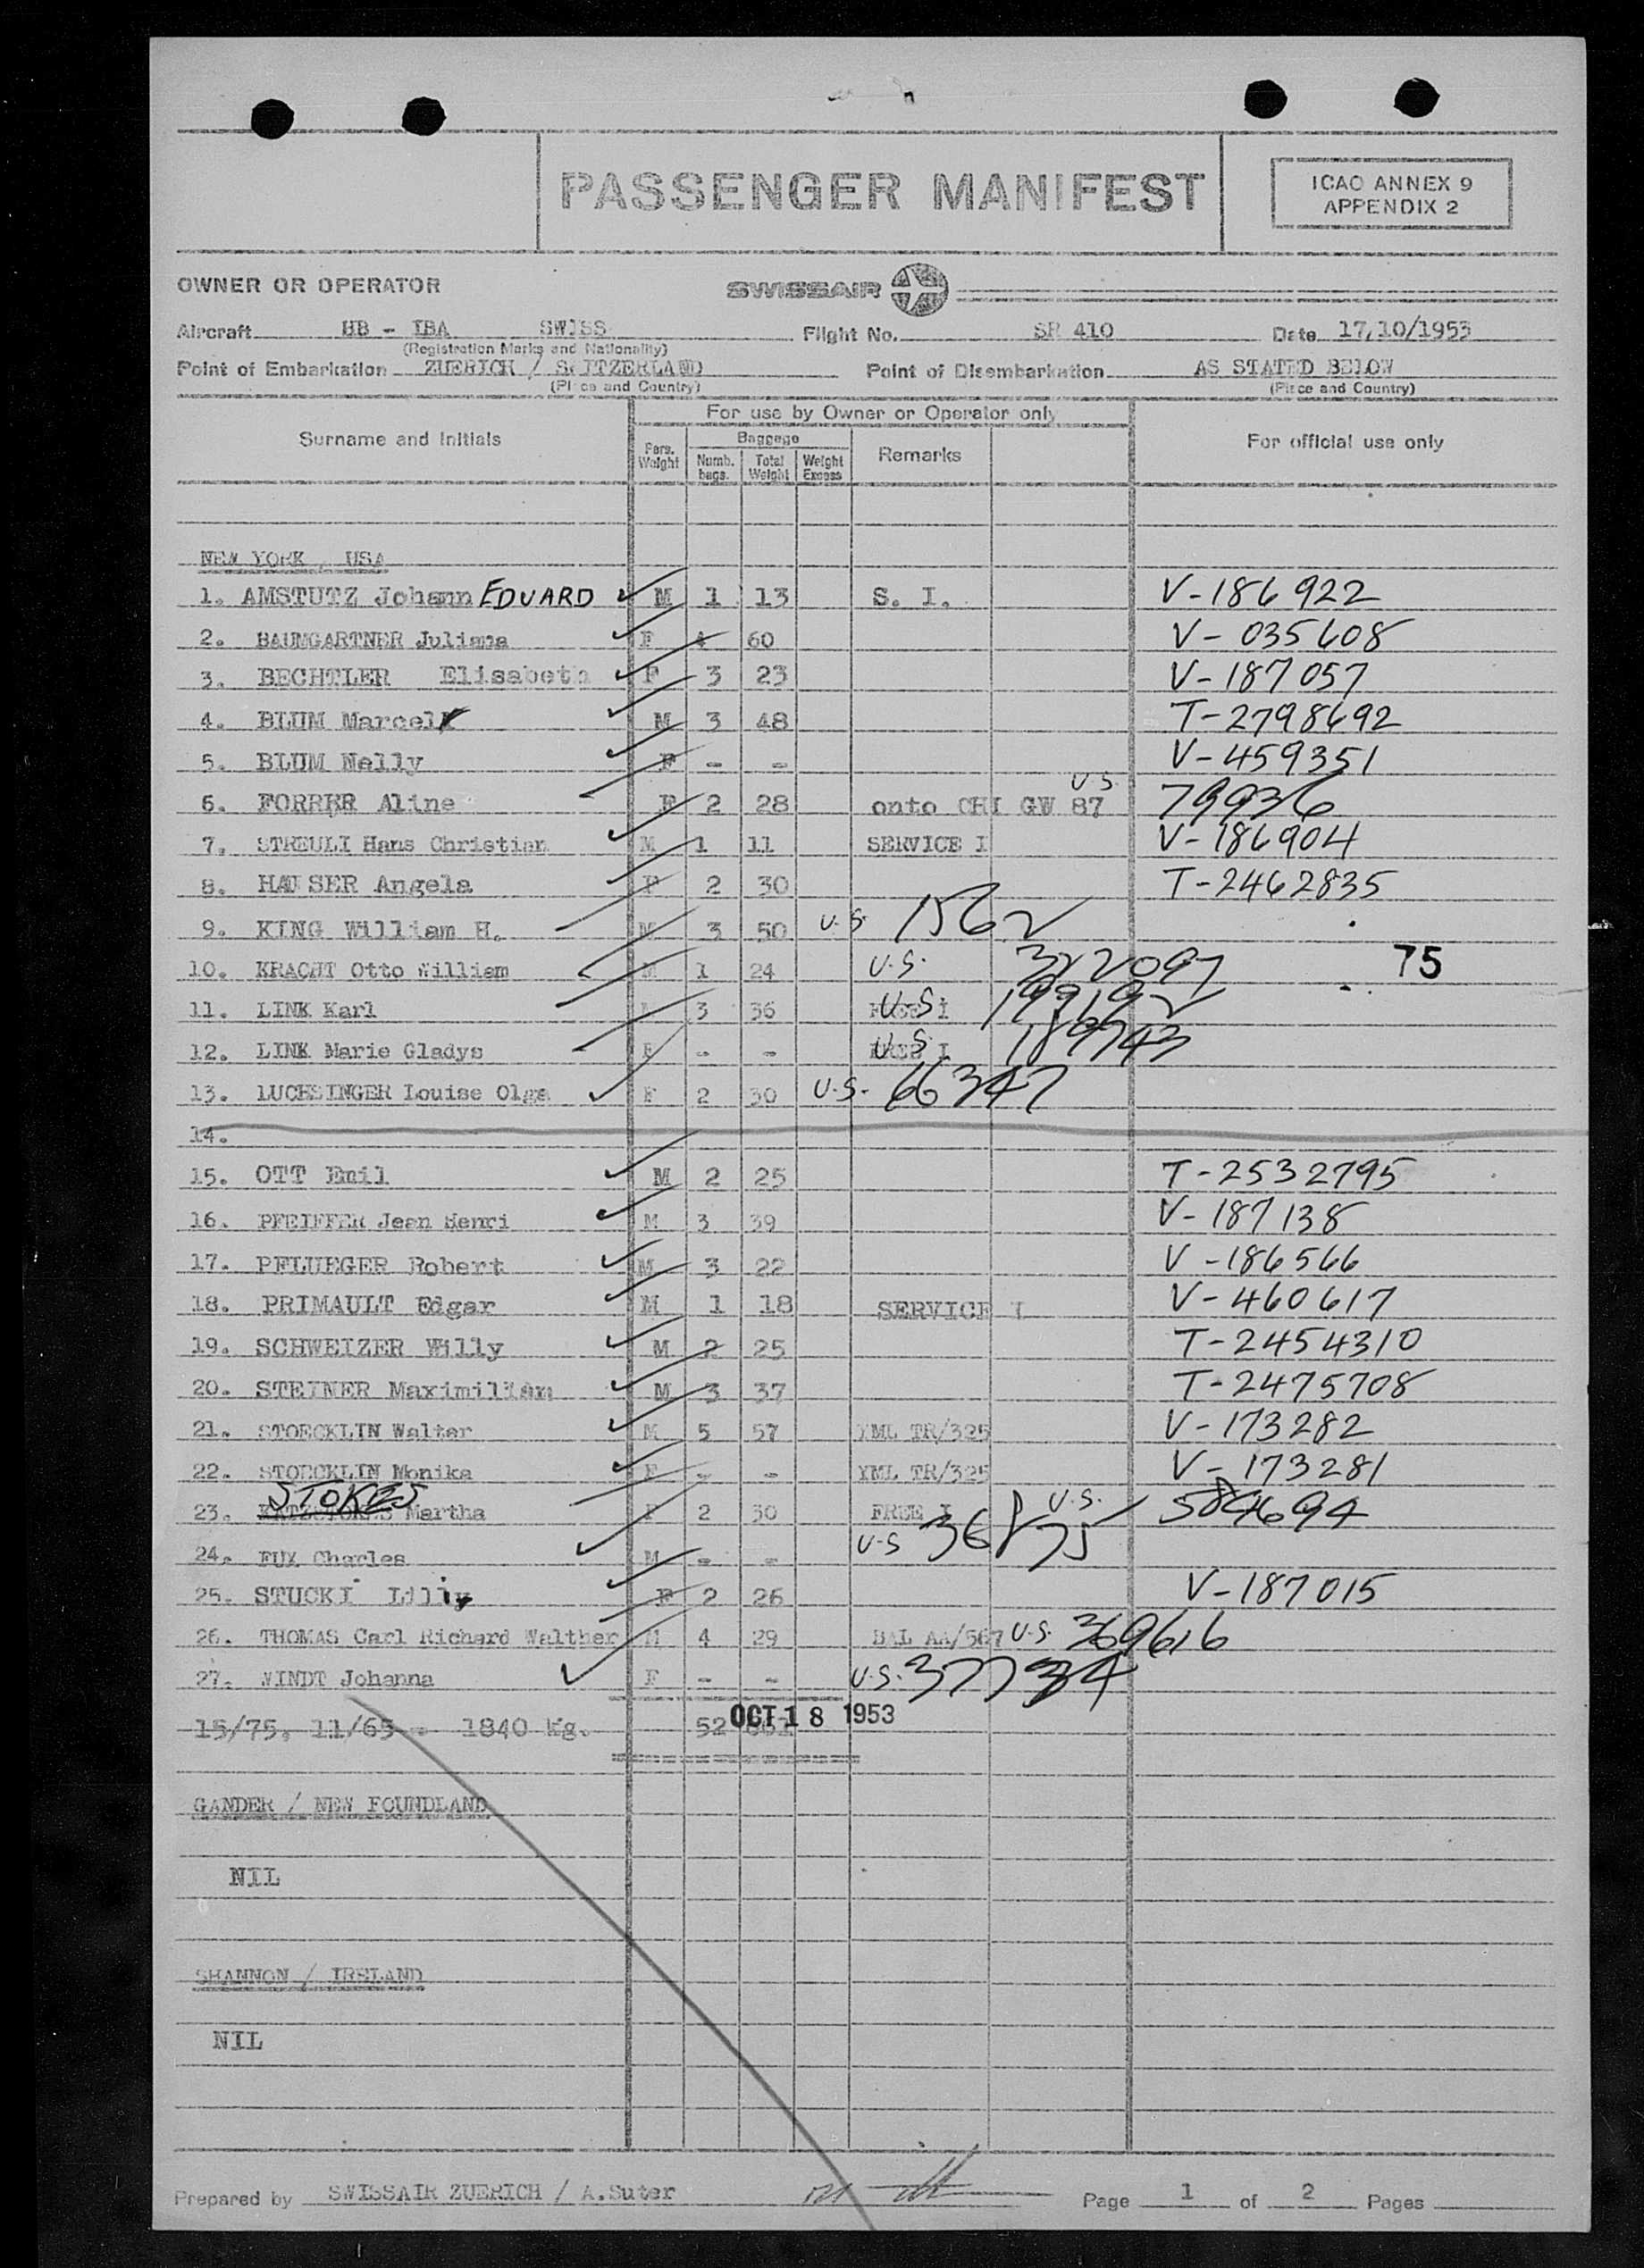 PASSENGER MANIFEST
ICAO ANNEX 9
APPENDIX 2
OWNER OR OPERATOR SWISSAIR
Aircraft HB - IBA SWISS Flight No. SR 410 Date 17.10/1953
(Registration Marks and Nationality)
Point of Embarkation ZUERICH / SWITZERLAND Point of Disembarkation AS STATED BELOW
(Place and Country) (Place and Country)
For use by Owner or Operator only
Surname and Initials Pers. Weight Baggage Remarks For official use only
Numb. bags. Total Weight Weight Excess
NEW YORK, USA
1. AMSTUTZ Johann EDUARD M 1 13 S. I. V-186922
2. BAUMGARTNER Juliana F 4 60 V-035608
3. BECHTLER Elisabeth F 3 23 V-187057
4. BLUM Marcel M 3 48 T-2798692
5. BLUM Nelly F - - V-459351
6. FORRER Aline F 2 28 onto CHI GW 87 U.S. 79936
7. STREULI Hans Christian M 1 11 SERVICE I V-186904
8. HAUSER Angela F 2 30 T-2462835
9. KING William H. M 3 50 U.S. 1562
10. KRACHT Otto William M 1 24 U.S. 322097 75
11. LINK Karl 3 36 FREE I U.S. 199192
12. LINK Marie Gladys F - - FREE I U.S. 189743
13. LUCHSINGER Louise Olga F 2 30 U.S. 66347
14.
15. OTT Emil M 2 25 T-2532795
16. PFEIFFER Jean Henri M 3 39 V-187138
17. PFLUEGER Robert M 3 22 V-186566
18. PRIMAULT Edgar M 1 18 SERVICE I V-460617
19. SCHWEIZER Willy M 2 25 T-2454310
20. STEINER Maximilian M 3 37 T-2475708
21. STOECKLIN Walter M 5 57 YML TR/325 V-173282
22. STOECKLIN Monika F - - YML TR/325 V-173281
STOKES
23. Martha F 2 30 FREE I U.S. 584694
24. FUX Charles M - - U.S 36875
25. STUCKI Lilly F 2 26 V-187015
26. THOMAS Carl Richard Walther M 4 29 BAL AA/567 U.S. 369616
27. WINDT Johanna F - - U.S. 37734
15/75, 11/65 = 1840 Kg. 52 OCT 18 1953
GANDER / NEW FOUNDLAND
NIL
SHANNON / IRELAND
NIL
Prepared by SWISSAIR ZUERICH / A.Suter Page 1 of 2 Pages